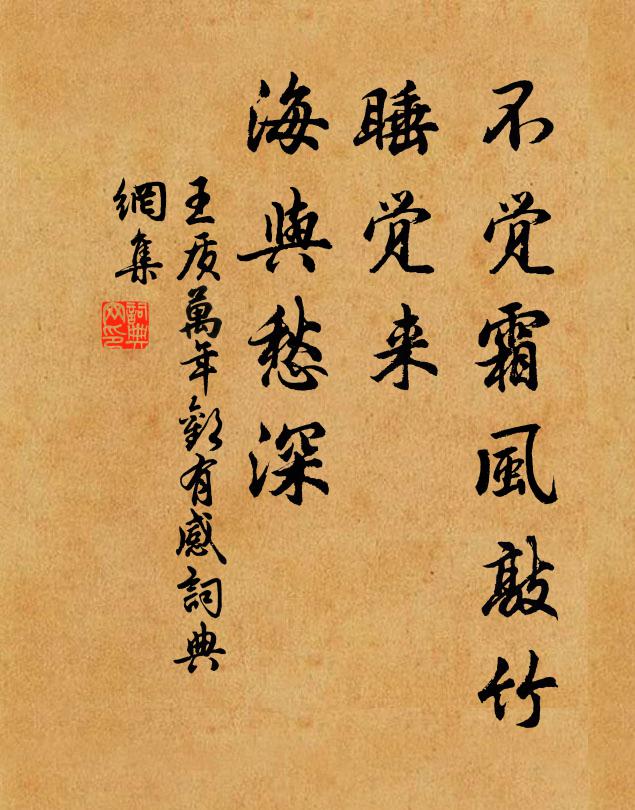 不觉霜風敲竹
睡觉来
海與愁深
王质萬年歡有感詞典
網集
詞典